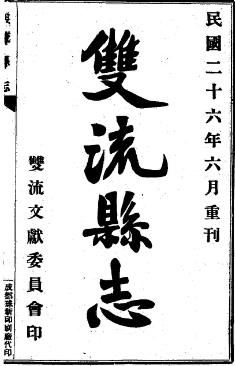 民國二十六年六月重刊
雙流縣志
雙流文獻委員會印
成都球新印刷廠代印